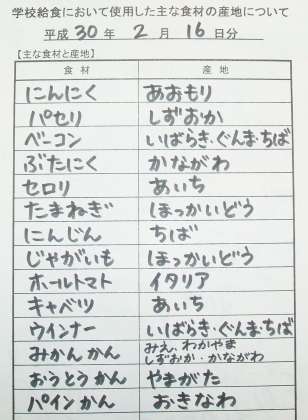 学校給食において使用した主な食材の産地について
平成 30 年 2 月 16 日分
【主な食材と産地】
食材 産地
にんにく あおもり
パセリ しずおか
ベーコン いばらき・ぐんま・ちば
ぶたにく かながわ
セロリ あいち
たまねぎ ほっかいどう
にんじん ちば
じゃがいも ほっかいどう
ホールトマト イタリア
キャベツ あいち
ウインナー いばらき・ぐんま・ちば
みかんかん みえ、わかやま
しずおか・かながわ
おうとうかん やまがた
パインかん おきなわ